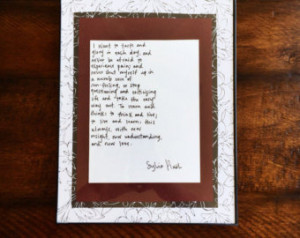 I want to taste and
glory in each day, and
never be afraid to
experience pain; and
never shut myself up in
a numb core of
non-feeling, or stop
questioning and criticizing
life and take the easy
way out. To learn and
think: to think and live;
to live and learn: this
always, with new
insight, new understanding,
and new love.
Sylvia Plath